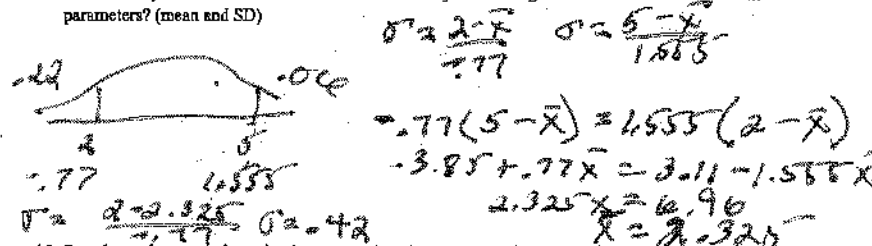 parameters? (mean and SD)
σ = 2-x̄ / -.77 σ = 5-x̄ / 1.555
.22 .06
2 5
-.77 1.555
-.77(5-x̄) = 1.555(2-x̄)
-3.85+.77x̄ = 3.11-1.555x̄
2.325x̄ = 6.96
x̄ = 2.325
σ = 2-2.325 / -.77 σ = .42